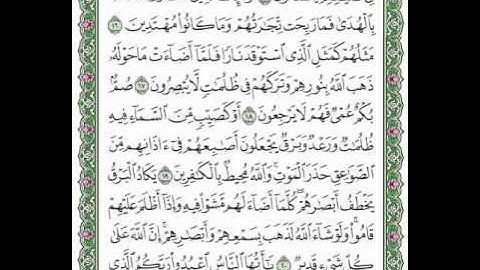 بِٱلۡهُدَىٰ فَمَا رَبِحَت تِّجَٰرَتُهُمۡ وَمَا كَانُواْ مُهۡتَدِينَ ١٦
مَثَلُهُمۡ كَمَثَلِ ٱلَّذِي ٱسۡتَوۡقَدَ نَارٗا فَلَمَّآ أَضَآءَتۡ مَا حَوۡلَهُۥ
ذَهَبَ ٱللَّهُ بِنُورِهِمۡ وَتَرَكَهُمۡ فِي ظُلُمَٰتٖ لَّا يُبۡصِرُونَ ١٧ صُمُّۢ
بُكۡمٌ عُمۡيٞ فَهُمۡ لَا يَرۡجِعُونَ ١٨ أَوۡ كَصَيِّبٖ مِّنَ ٱلسَّمَآءِ فِيهِ
ظُلُمَٰتٞ وَرَعۡدٞ وَبَرۡقٞ يَجۡعَلُونَ أَصَٰبِعَهُمۡ فِيٓ ءَاذَانِهِم مِّنَ
ٱلصَّوَٰعِقِ حَذَرَ ٱلۡمَوۡتِۚ وَٱللَّهُ مُحِيطُۢ بِٱلۡكَٰفِرِينَ ١٩ يَكَادُ ٱلۡبَرۡقُ
يَخۡطَفُ أَبۡصَٰرَهُمۡۖ كُلَّمَآ أَضَآءَ لَهُم مَّشَوۡاْ فِيهِ وَإِذَآ أَظۡلَمَ عَلَيۡهِمۡ
قَامُواْۚ وَلَوۡ شَآءَ ٱللَّهُ لَذَهَبَ بِسَمۡعِهِمۡ وَأَبۡصَٰرِهِمۡۚ إِنَّ ٱللَّهَ عَلَىٰ
كُلِّ شَيۡءٖ قَدِيرٞ ٢٠ يَٰٓأَيُّهَا ٱلنَّاسُ ٱعۡبُدُواْ رَبَّكُمُ ٱلَّذِي